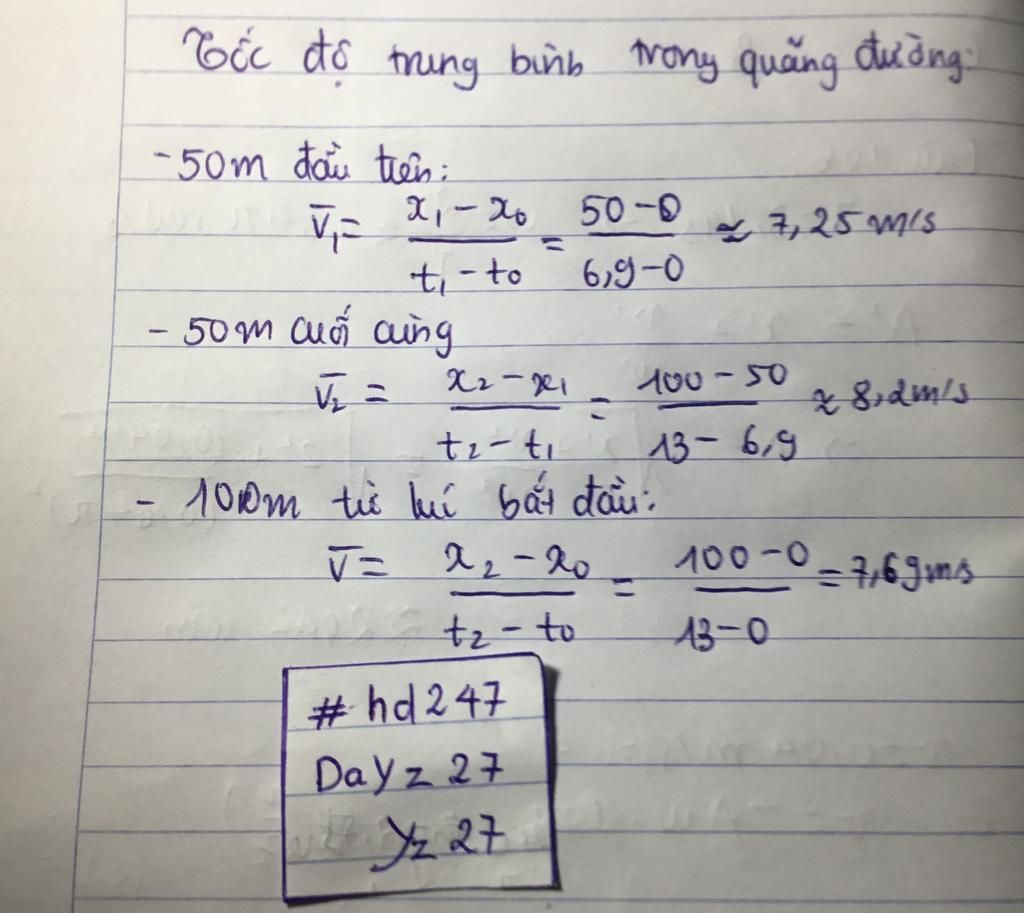 Tốc độ trung bình trong quãng đường:
- 50m đầu tiên:
v̅₁ = (x₁ - x₀)/(t₁ - t₀) = (50 - 0)/(6,9 - 0) ≈ 7,25 m/s
- 50m cuối cùng
v̅₂ = (x₂ - x₁)/(t₂ - t₁) = (100 - 50)/(13 - 6,9) ≈ 8,2m/s
- 100m từ lúc bắt đầu:
v̅ = (x₂ - x₀)/(t₂ - t₀) = (100 - 0)/(13 - 0) = 7,69m/s
# hd247
DaYz 27
Yz 27